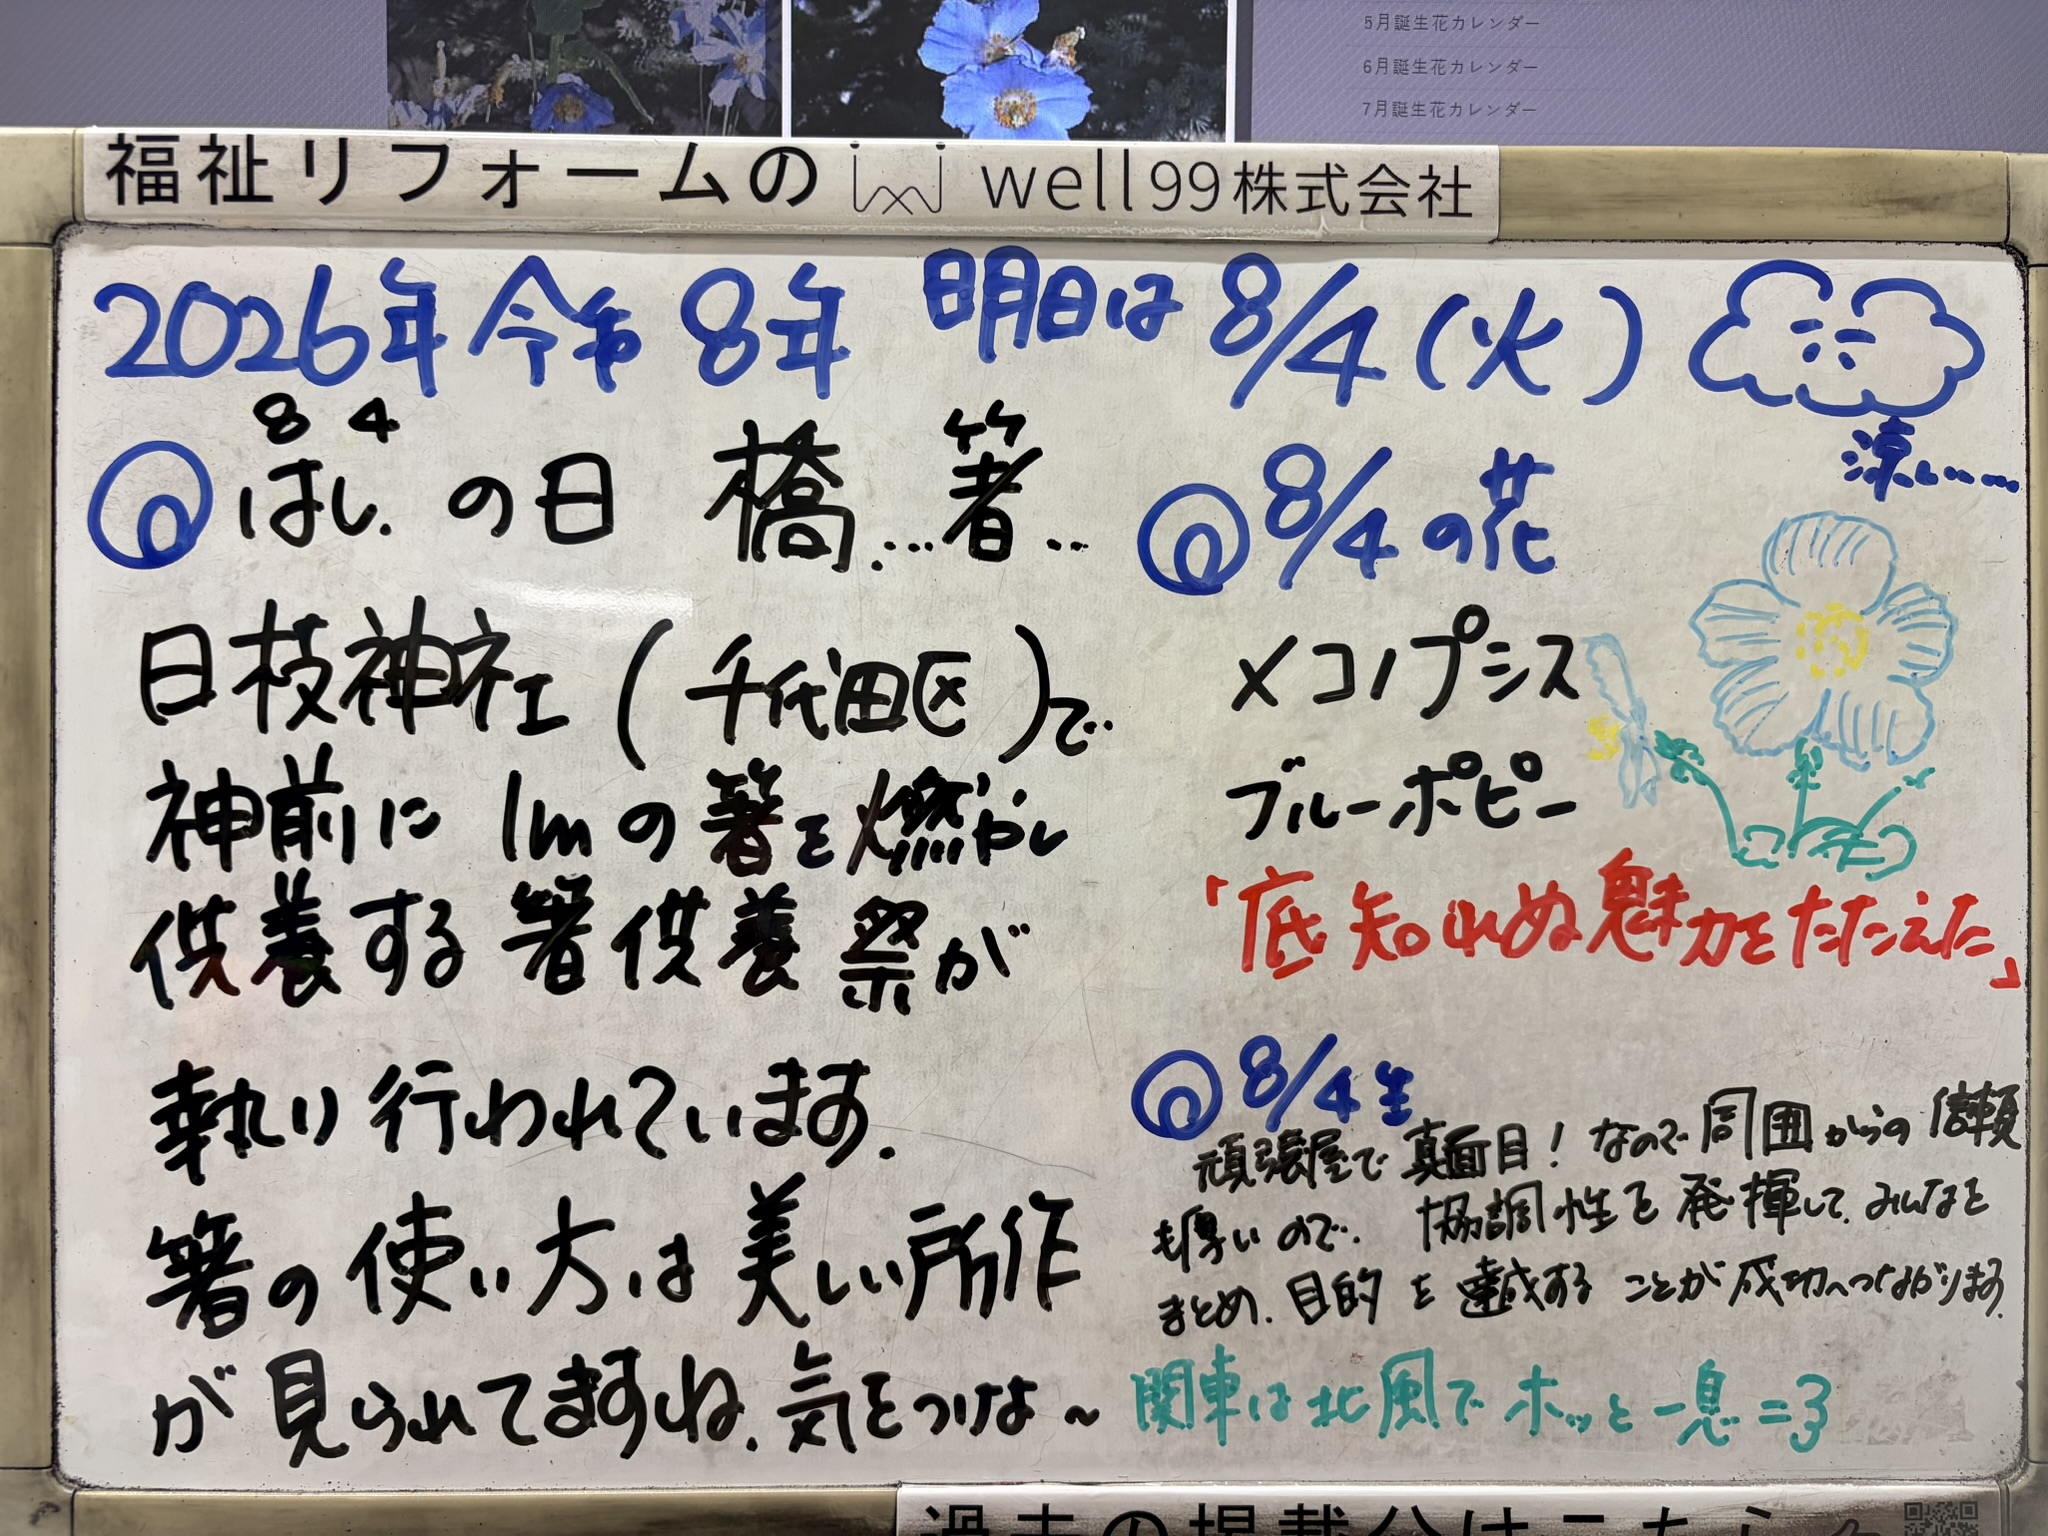 5月誕生花カレンダー
6月誕生花カレンダー
7月誕生花カレンダー
福祉リフォームの well99株式会社
2026年 令和 8年 明日は 8/4(火)
涼しい……
8 4
はし の日 橋…箸…
日枝神社(千代田区)で
神前に 1mの箸を燃やし
供養する箸供養祭が
執り行われています.
箸の使い方は美しい所作
が見られてますね.気をつけよ~
8/4の花
メコノプシス
ブルーポピー
「底知れぬ魅力をたたえた」
8/4生
頑張屋で真面目!なので周囲からの信頼
も厚いので.協調性を発揮して.みんなを
まとめ.目的を達成することが成功へつながります.
関東は北風でホッと一息=3
過去の掲載分はこちら